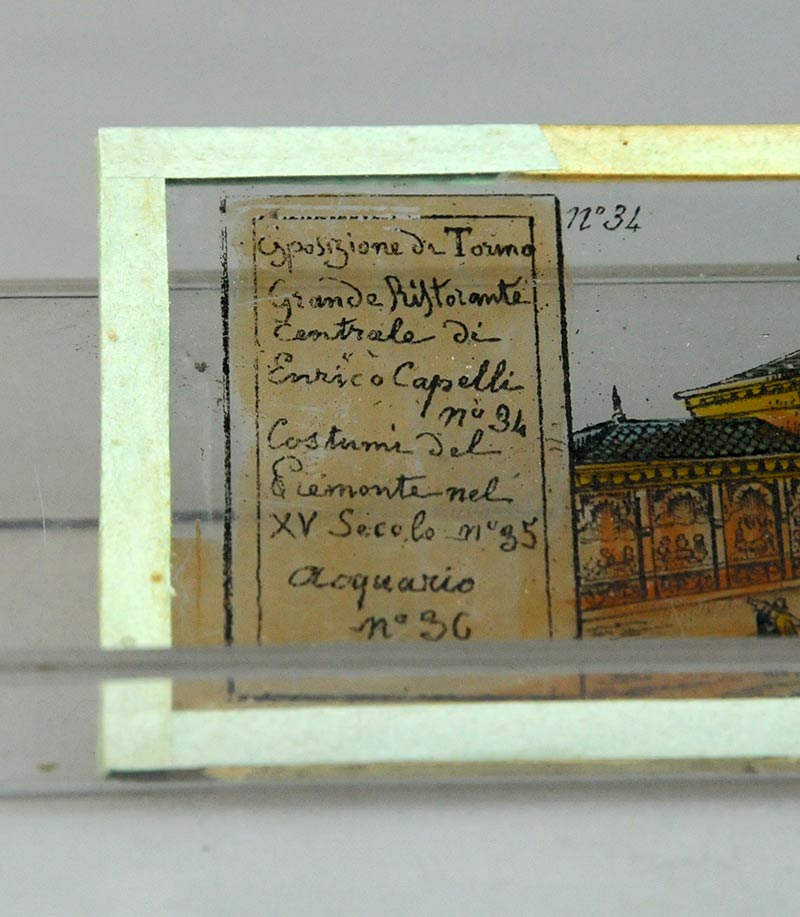 Esposizione di Torino
Grande Ristorante
centrale di
Enrico Capelli
nº 34
Costumi del
Piemonte nel
XV Secolo nº 35
Acquario
nº 36
nº 34